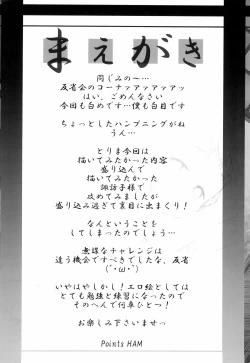 まえがき
同じみの〜…
反省会のコーナァァァァァッ
はい、ごめんなさい
今回も白めです…僕も白目です
ちょっとしたハンプニングがね
うん…
とりま今回は
描いてみたかった内容
盛り込んで
描いてみたかった
諏訪子様で
攻めてましたが
盛り込み過ぎて裏目に出まくり!
なんということを
してしまったのでしょう…
無謀なチャレンジは
違う機会ですべきでしたな、反省
(´･ω･`)
いやはやしかし!エロ絵としては
とても勉強と練習になったので
そのへんで何卒ひとつ!
お楽しみ下さいませっ
Points HAM